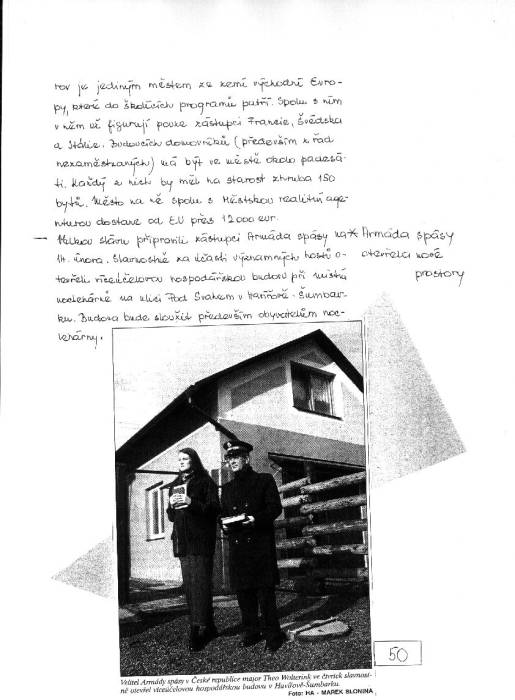 rov je jediným městem ze zemí východní Evro-
py, které do školících programů patří. Spolu s ním
v něm už figurují pouze zástupci Francie, Švédska
a Itálie. Budoucích domovníků (především z řad
nezaměstnaných) má být ve městě okolo padesá-
ti. Každý z nich by měl na starost zhruba 150
bytů. Město na ně spolu s Městskou realitní age-
nturou dostane od EU přes 12 000 eur.
— Velkou slávu připravili zástupci Armáda spásy na
14. února. Slavnostně za účasti významných hostů o-
tevřeli víceúčelovou hospodářskou budovu při místní
noclehárně na ulici Pod Svahem v Havířově-Šumbar-
ku. Budova bude sloužit především obyvatelům noc-
lehárny.
* Armáda spásy
otevřela nové
prostory
Velitel Armády spásy v České republice major Theo Wolterink ve čtvrtek slavnost-
ně otevřel víceúčelovou hospodářskou budovu v Havířově-Šumbarku.
Foto: HA - MAREK BLONINA
50